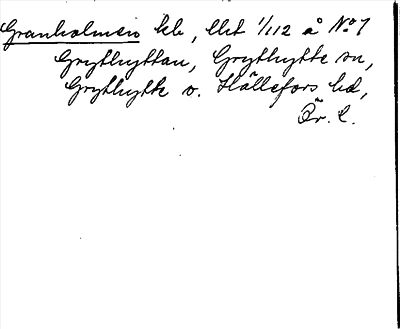 Granholmen lb, litt 1/112 å No 7
Grythyttan, Grythytte sn,
Grythytte o. Hällefors hd,
Ör. l.